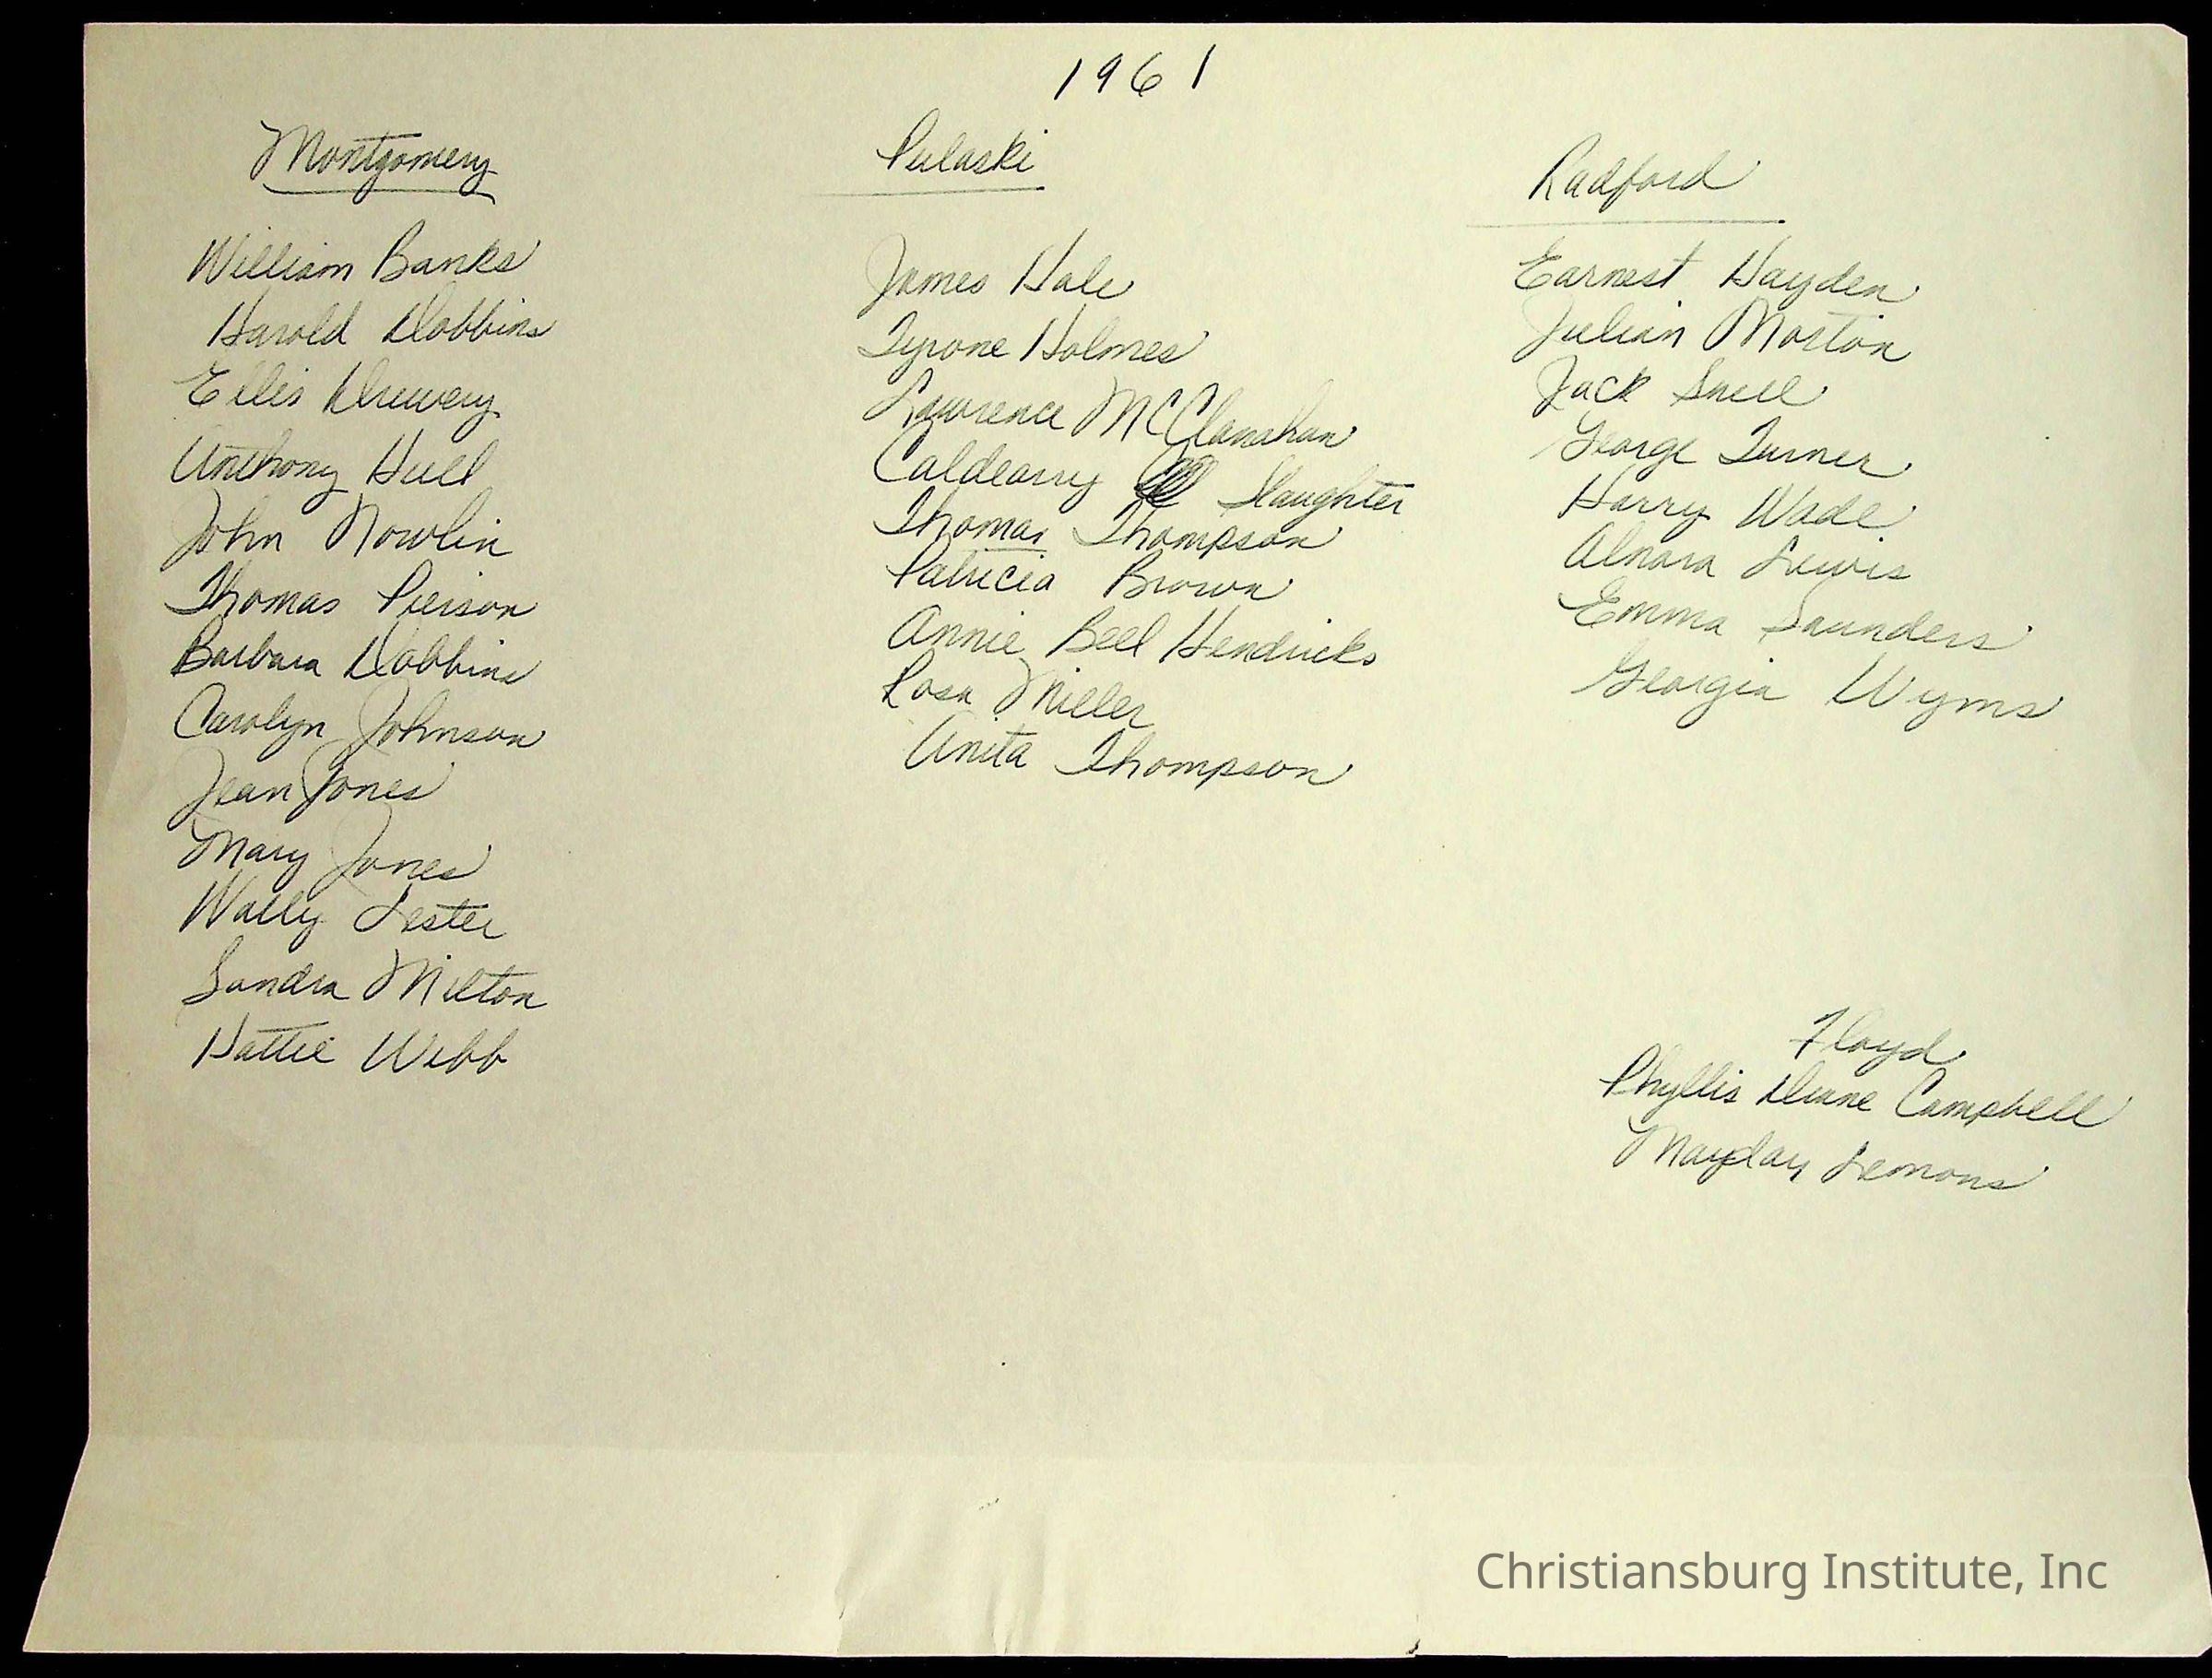 1961
Montgomery
William Banks
Harold Dobbins
Ellis Drewery
Anthony Hull
John Nowlin
Thomas Pierson
Barbara Dobbins
Carolyn Johnson
Jean Jones
Mary Jones
Wally Lester
Sandra Milton
Hattie Webb
Pulaski
James Hale
Tyrone Holmes
Lawrence McClanahan
Caldearry Slaughter
Thomas Thompson
Patricia Brown
Annie Bell Hendricks
Rosa Miller
Anita Thompson
Radford
Earnest Hayden
Julian Morton
Jack Snell
George Turner
Harry Wade
Alnara Lewis
Emma Saunders
Georgia Wyms
Floyd
Phyllis Diane Campbell
Mayday Lemons
Christiansburg Institute, Inc